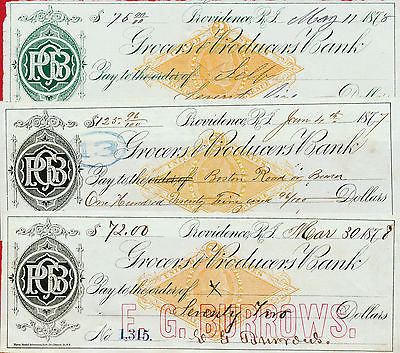 $75 00/00 Providence, R.I. May 11 1878
Grocers & Producers Bank
Pay to the order of Self
Seventy Five
PB
$125.96/100 Providence, R.I. Jan 4th 1877
13
Grocers & Producers Bank
Pay to the order of Boston Road or Bearer
One Hundred Twenty five and 96/100 Dollars
PB
$72.00 Providence, R.I. Mar 30 1878
Grocers & Producers Bank
Pay to the order of X
Seventy Two Dollars
E. G. BURROWS.
No. 1315. E G Burrows.